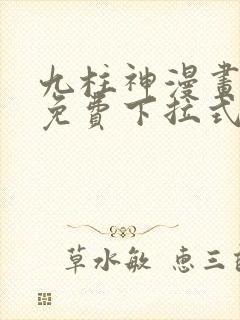 九柱神漫畫
免費下拉式
草水敏 恵三